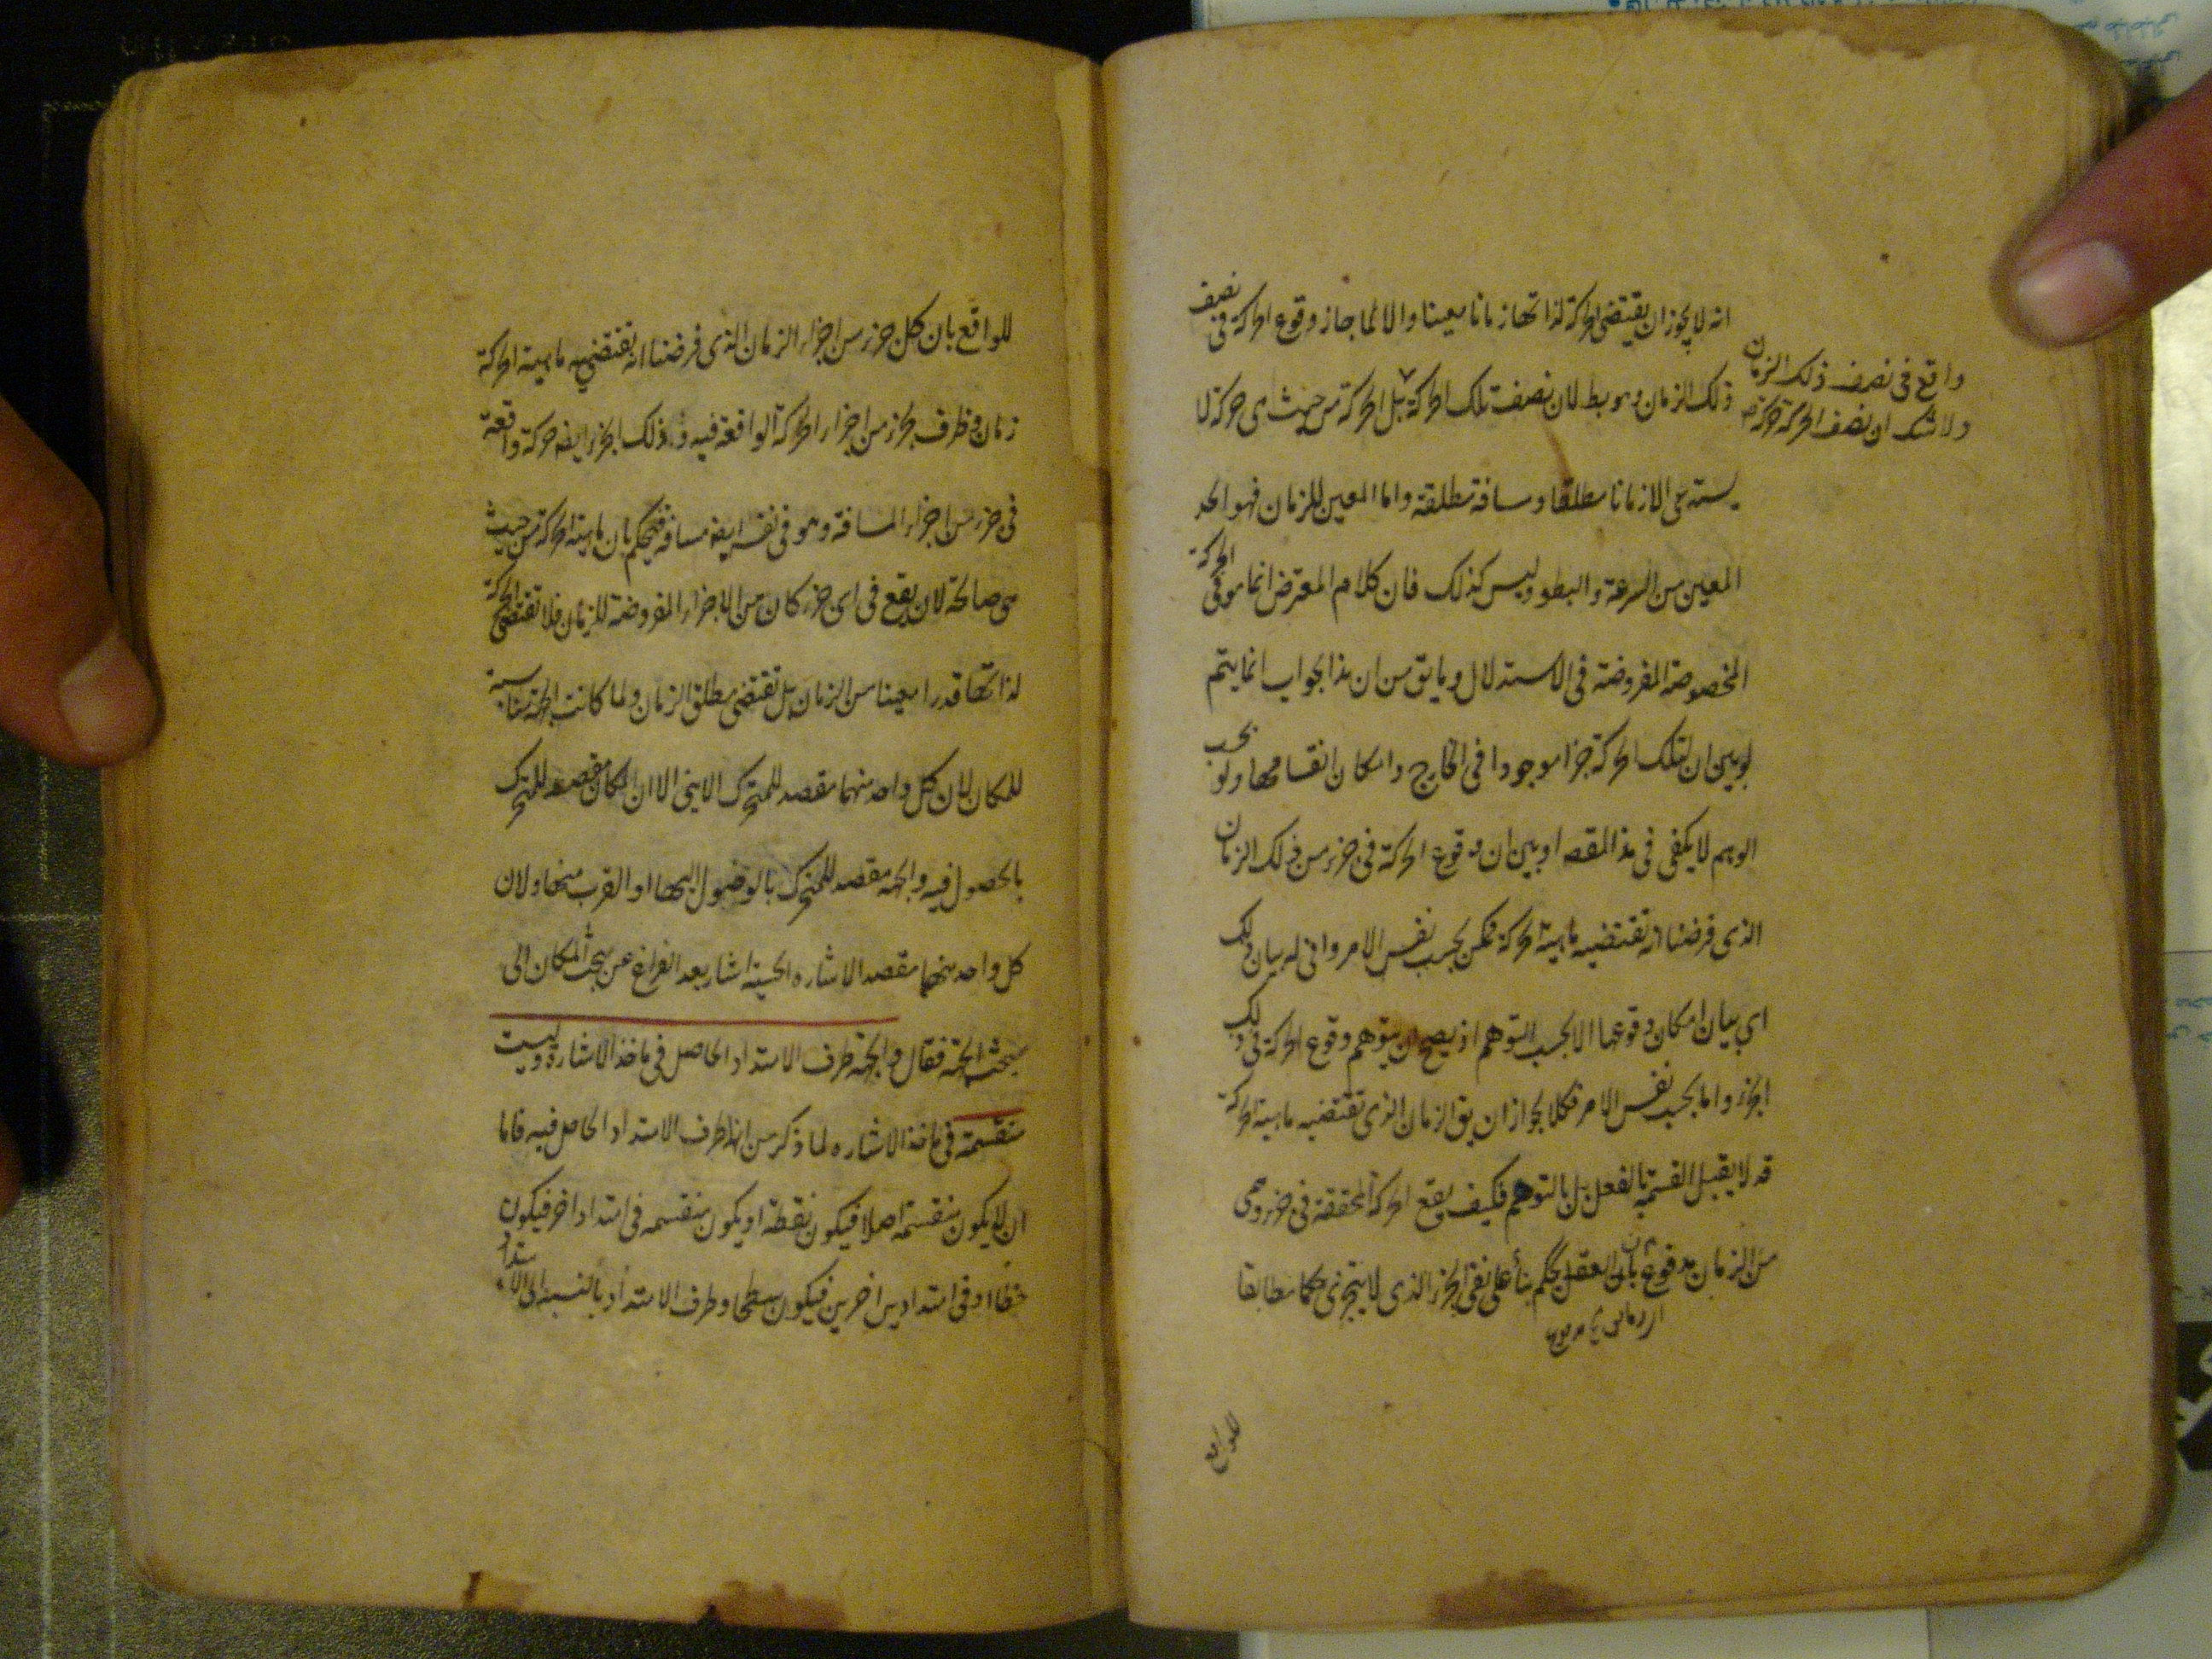 انه لا يجوز ان يقتضى الحركة لذاتها زمانا معينا والا لما جاز وقوع الحركة فى نصف
ذلك الزمان وهو بط لان نصف تلك الحركة بل الحركة من حيث هى حركة لا
واقع فى نصف ذلك الزمان
ولا شك ان نصف الحركة حركة
يستدعى الا زمانا مطلقا ومسافة مطلقة واما المعين للزمان فهو الحد
المعين من السرعة والبطو وليس كذلك فان كلام المعترض انما هو فى الحركة
المخصوصة المفروضة فى الاستدلال وما يق من ان هذا الجواب انما يتم
لو بين ان لتلك الحركة جزا موجودا فى الخارج وامكان انقسامها ولو بحسب
الوهم لا يكفى فى هذا المقصد او بين ان وقوع الحركة فى جزء من ذلك الزمان
الذى فرضنا انه تقتضيه ماهية الحركة ممكن بحسب نفس الامر وانى له بيان ذلك
اى بيان امكان وقوعها الا بحسب التوهم اذ يصح ان يتوهم وقوع الحركة فى ذلك
الجزء واما بحسب نفس الامر فكلا لجواز ان يق الزمان الذى تقتضيه ماهية الحركة
قد لا يقبل القسمة بالفعل بل بالتوهم فكيف يقع الحركة المحققة فى جزء وهمى
من الزمان مدفوع بان العقل يحكم بنأ على نفى الجزء الذى لا يتجزى حكما مطابقا
للواقع
للواقع بان كل جزء من اجزاء الزمان الذى فرضنا انه تقتضيه ماهية الحركة
زمان وظرف لجزء من اجزاء الحركة الواقعة فيه و ذلك الجزء ايضه حركة واقعة
فى جزء من اجزاء المسافة وهو فى نفسه ايضه مسافة فيحكم بان ماهية الحركة من حيث
هى صالحة لان يقع فى اى جزء كان من الاجزاء المفروضة للزمان فلا تقتضى الحركة
لذاتها قدرا معينا من الزمان بل تقتضى مطلق الزمان ولما كانت الجهة مناسبة
للمكان لان كل واحد منهما مقصد للمتحرك الاينى الا ان المكان مقصد للمتحرك
بالحصول فيه والجهة مقصد للمتحرك بالوصول اليها او القرب منها ولان
كل واحد منهما مقصد الاشاره الحسية اشار بعد الفراغ عن بحث المكان الى
بحث الجهة فقال والجهة طرف الامتداد الحاصل فى ماخذ الاشارة وليست
منقسمة فى ماخذ الاشاره لما ذكر من انها طرف الامتداد الحاصل فيه فاما
ان لا يكون منقسمة اصلا فيكون نقطة او يكون منقسمه فى امتداد اخر فيكون
خطا او فى امتدادين اخرين فيكون سطحا وطرف الامتداد بالنسبة الى الامتداد